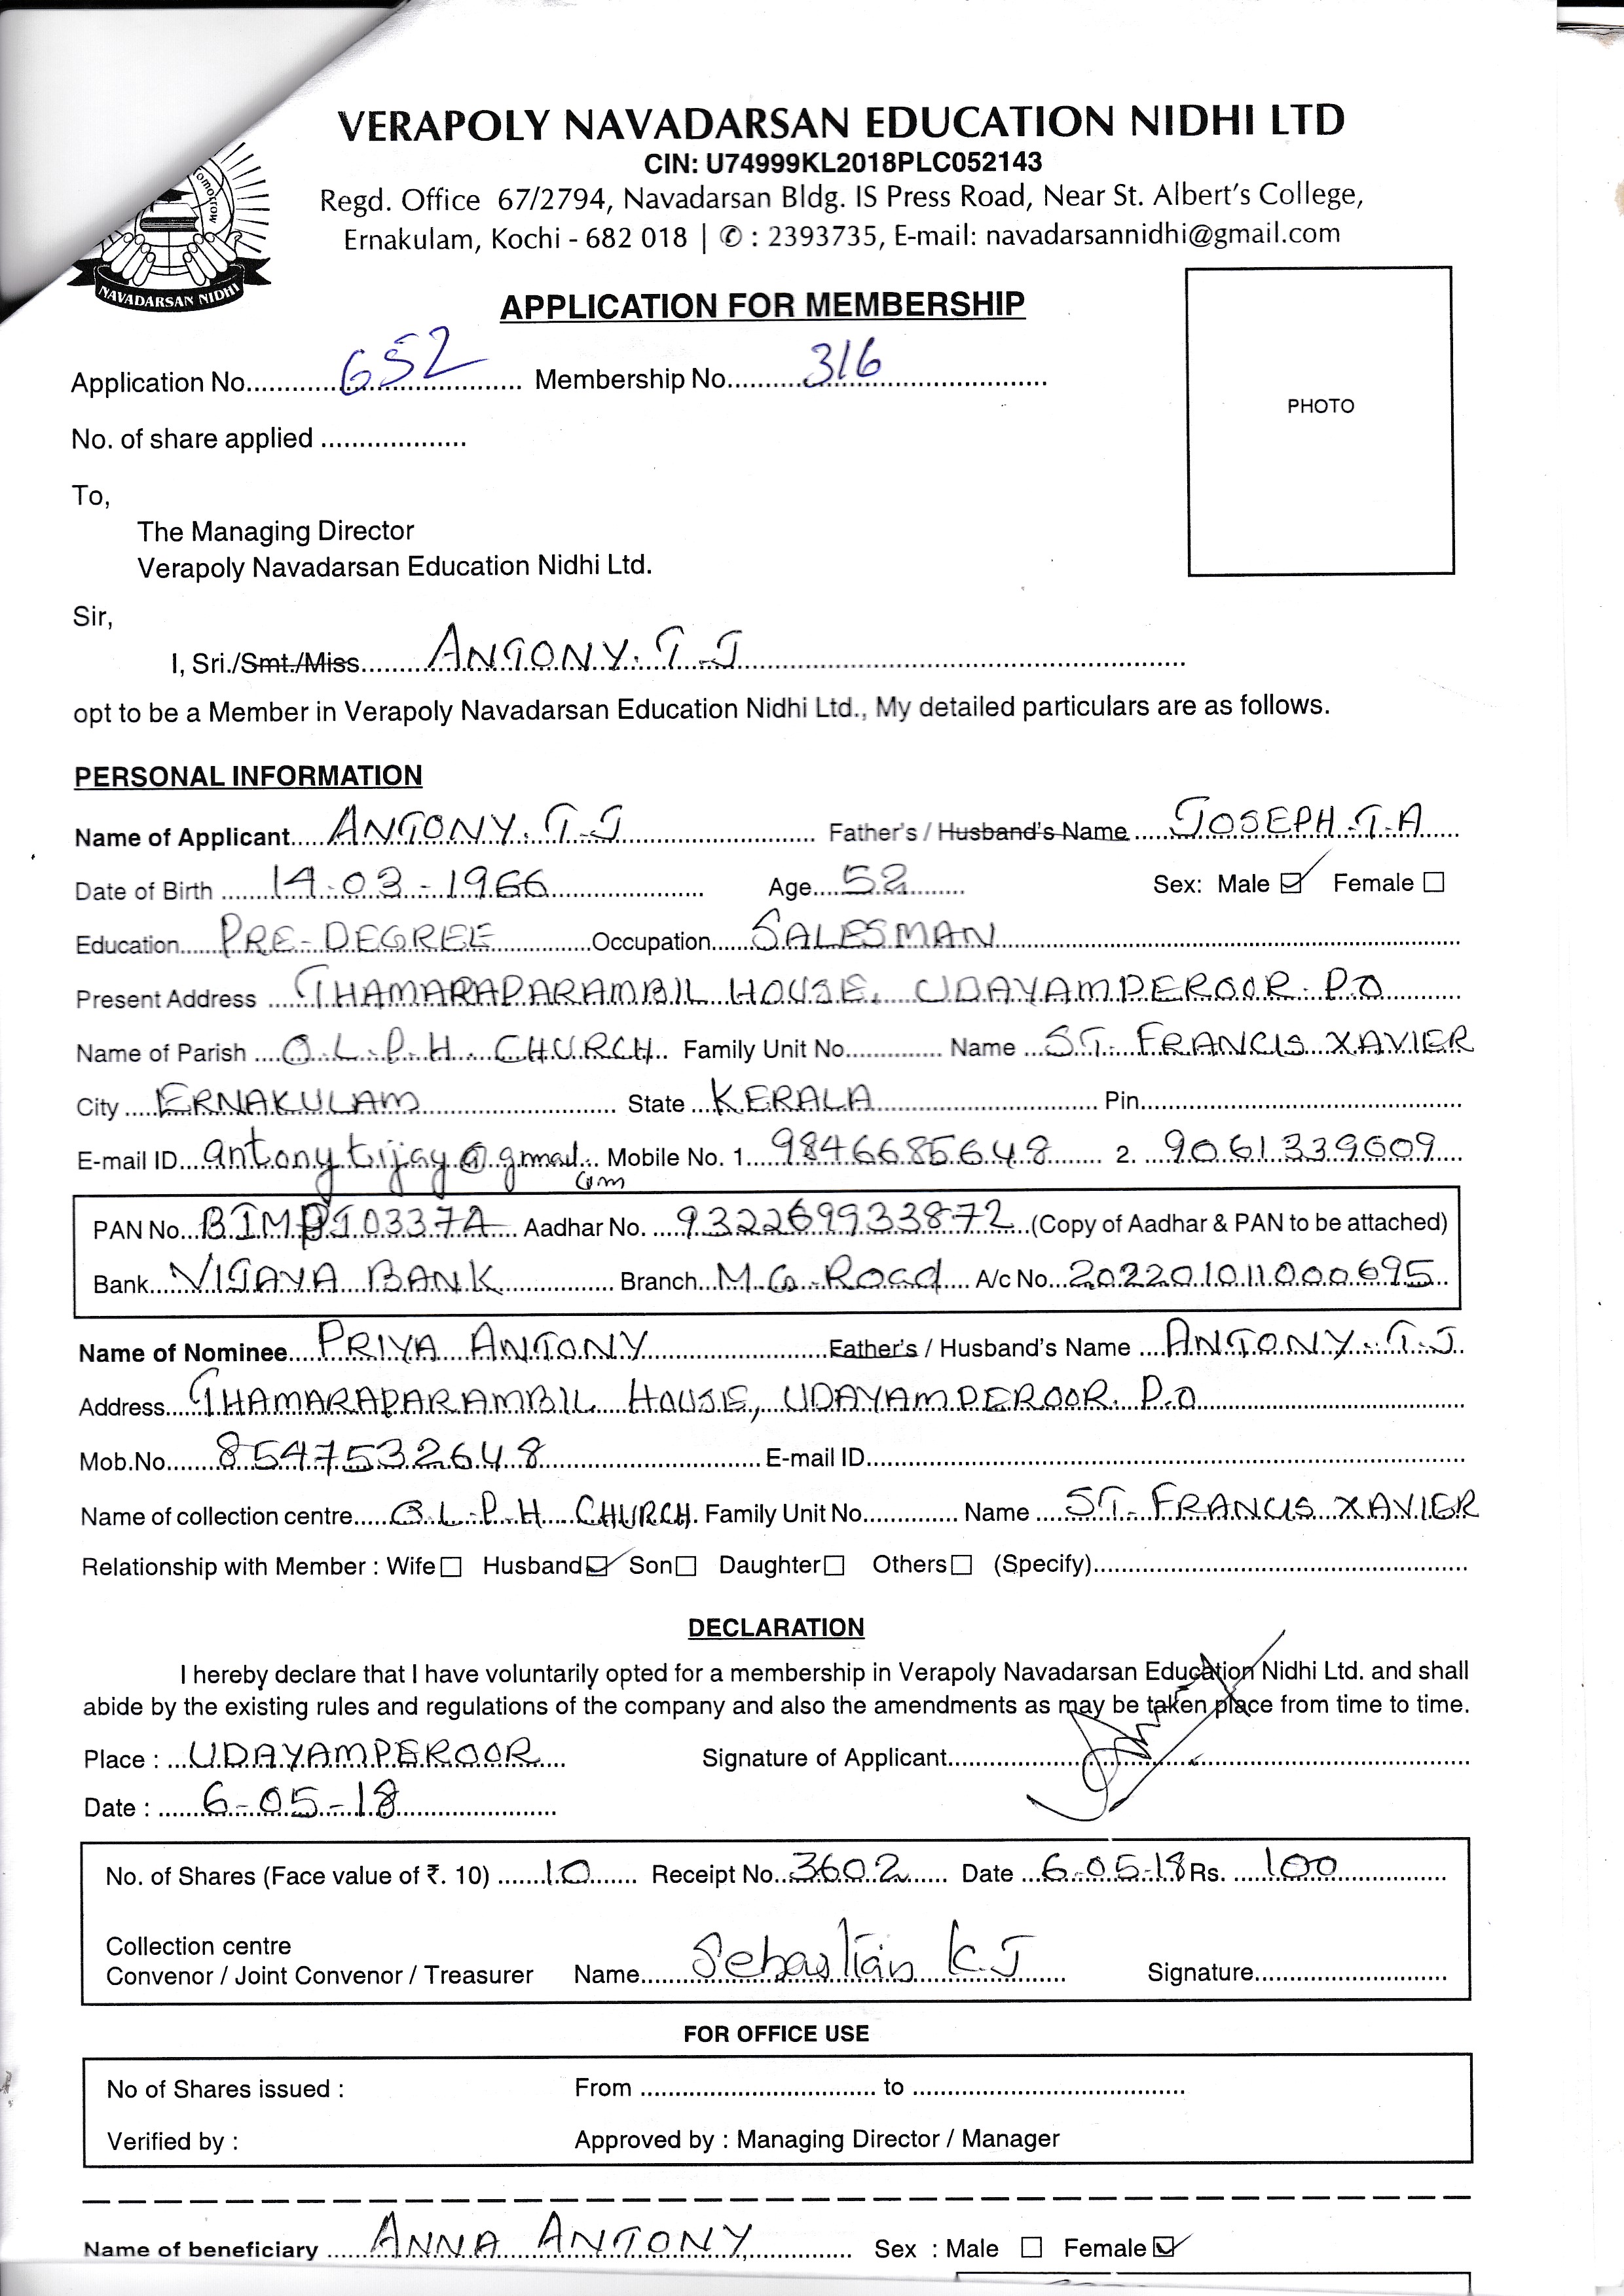 Tomorrow
NAVADARSAN NIDHI
VERAPOLY NAVADARSAN EDUCATION NIDHI LTD
CIN: U74999KL2018PLC052143
Regd. Office 67/2794, Navadarsan Bldg. IS Press Road, Near St. Albert's College,
Ernakulam, Kochi - 682 018 | ✆ : 2393735, E-mail: navadarsannidhi@gmail.com
APPLICATION FOR MEMBERSHIP
PHOTO
Application No. 652 Membership No. 316
No. of share applied
To,
The Managing Director
Verapoly Navadarsan Education Nidhi Ltd.
Sir,
I, Sri./Smt./Miss ANTONY. T. J
opt to be a Member in Verapoly Navadarsan Education Nidhi Ltd., My detailed particulars are as follows.
PERSONAL INFORMATION
Name of Applicant ANTONY. T. J Father's / Husband's Name JOSEPH. T. A
Date of Birth 14-03-1966 Age 52 Sex: Male ☑ Female ☐
Education PRE-DEGREE Occupation SALESMAN
Present Address THAMARAPARAMBIL HOUSE, UDAYAMPEROOR. P.O
Name of Parish O.L.P.H. CHURCH Family Unit No. Name ST. FRANCIS XAVIER
City ERNAKULAM State KERALA Pin
E-mail ID antonytijay@gmail. Mobile No. 1. 9846685648 2. 9061339609
com
PAN No. Aadhar No. 932269933872 (Copy of Aadhar & PAN to be attached)
Bank VIJAYA BANK Branch M.G. Road A/c No. 202201011000695
Name of Nominee PRIYA ANTONY Father's / Husband's Name ANTONY. T. J.
Address THAMARAPARAMBIL HOUSE, UDAYAMPEROOR. P.O
Mob.No. 8547532648 E-mail ID
Name of collection centre O.L.P.H CHURCH. Family Unit No. Name ST. FRANCIS XAVIER
Relationship with Member : Wife ☐ Husband ☑ Son ☐ Daughter ☐ Others ☐ (Specify)
DECLARATION
I hereby declare that I have voluntarily opted for a membership in Verapoly Navadarsan Education Nidhi Ltd. and shall
abide by the existing rules and regulations of the company and also the amendments as may be taken place from time to time.
Place : UDAYAMPEROOR Signature of Applicant
Date : 6-05-18
No. of Shares (Face value of ₹. 10) 10 Receipt No. 3602 Date 6-05-18 Rs. 100
Collection centre
Convenor / Joint Convenor / Treasurer Name Sebastian K.J Signature
FOR OFFICE USE
No of Shares issued : From to
Verified by : Approved by : Managing Director / Manager
Name of beneficiary ANNA ANTONY, Sex : Male ☐ Female ☑